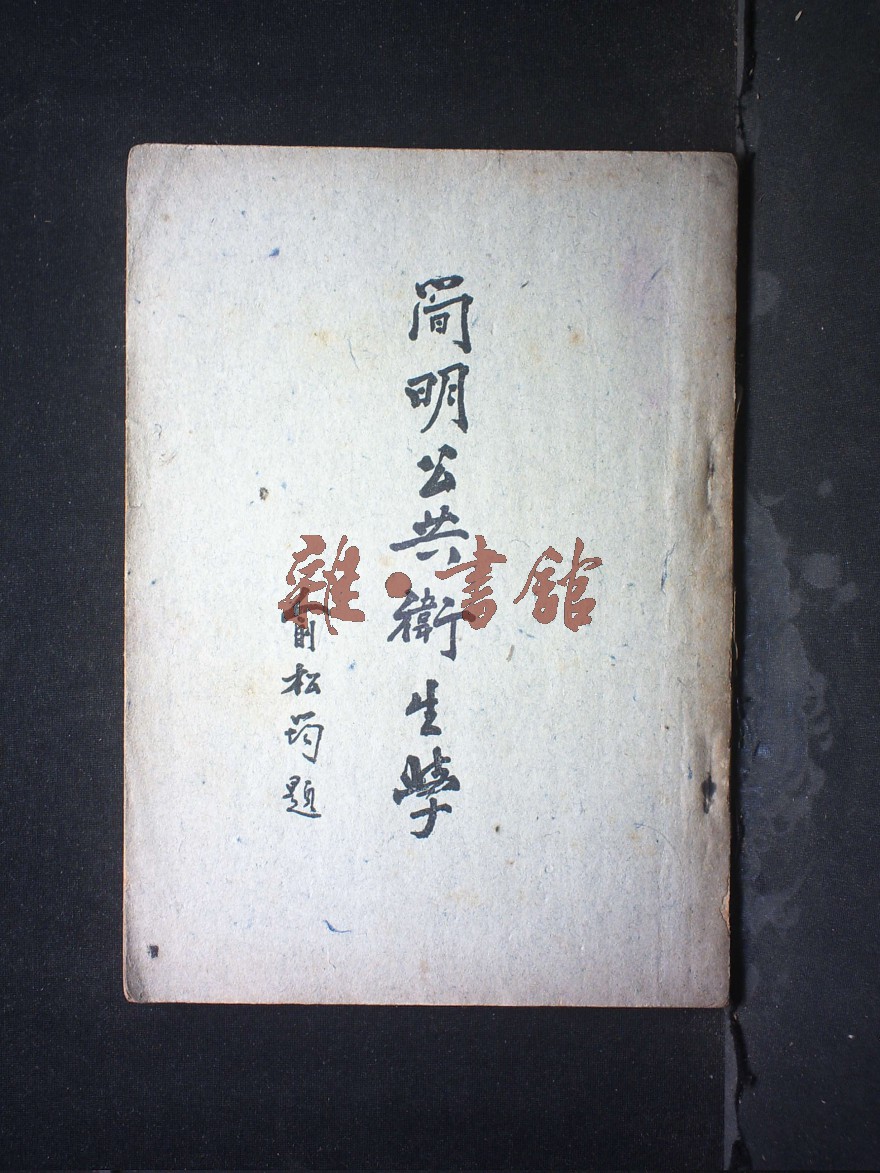 简明公共衛生學
俞松筠題
雜·書館